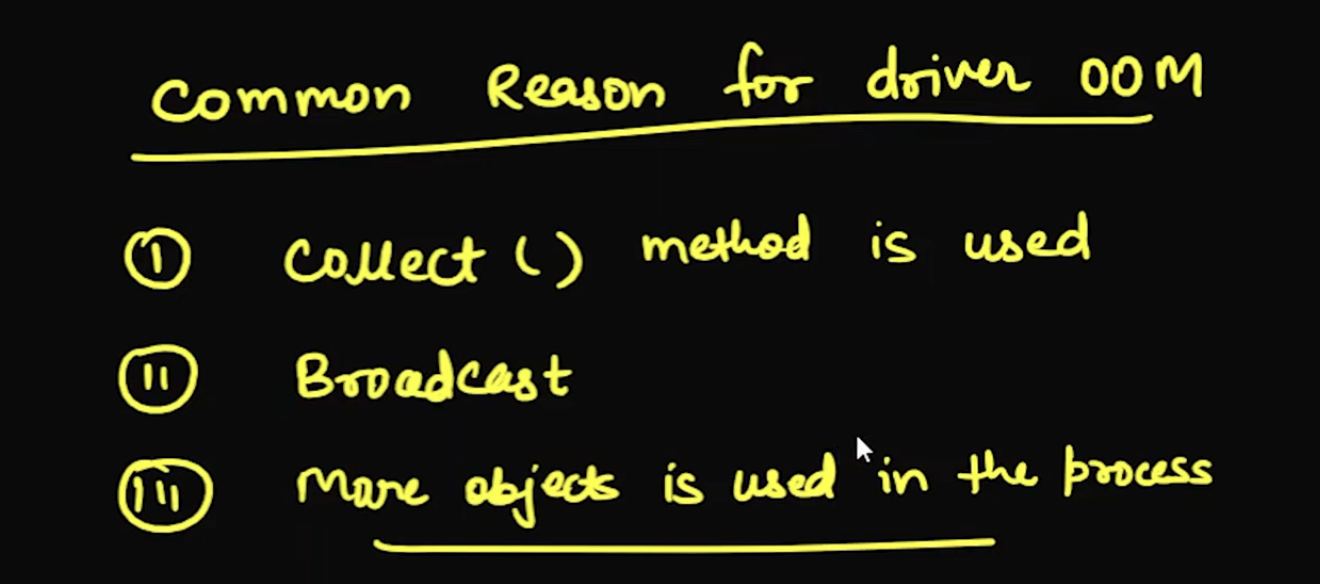 Common Reason for driver OOM
(I) Collect () method is used
(II) Broadcast
(III) More objects is used in the process